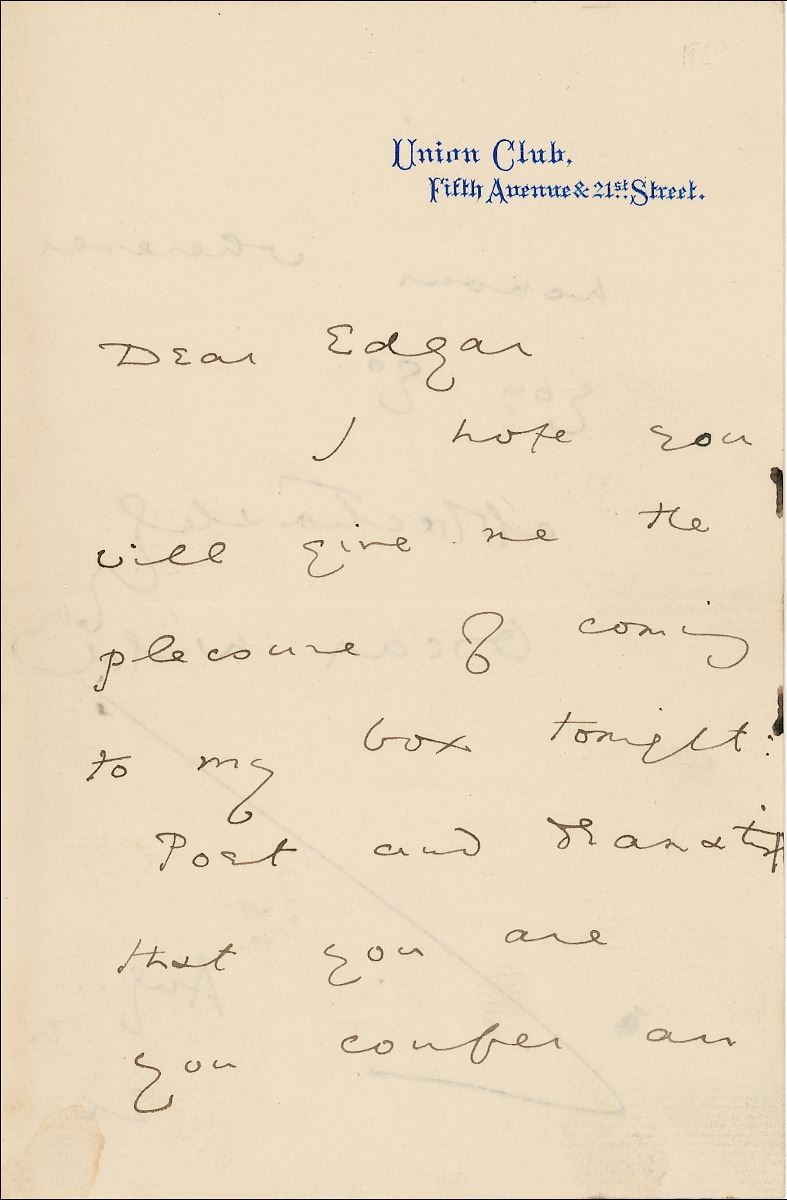 Union Club,
Fifth Avenue & 21st Street.
Dear Edgar
I hope you
will give me the
pleasure of coming
to my box tonight:
Poet and dramatist
that you are
you confer an